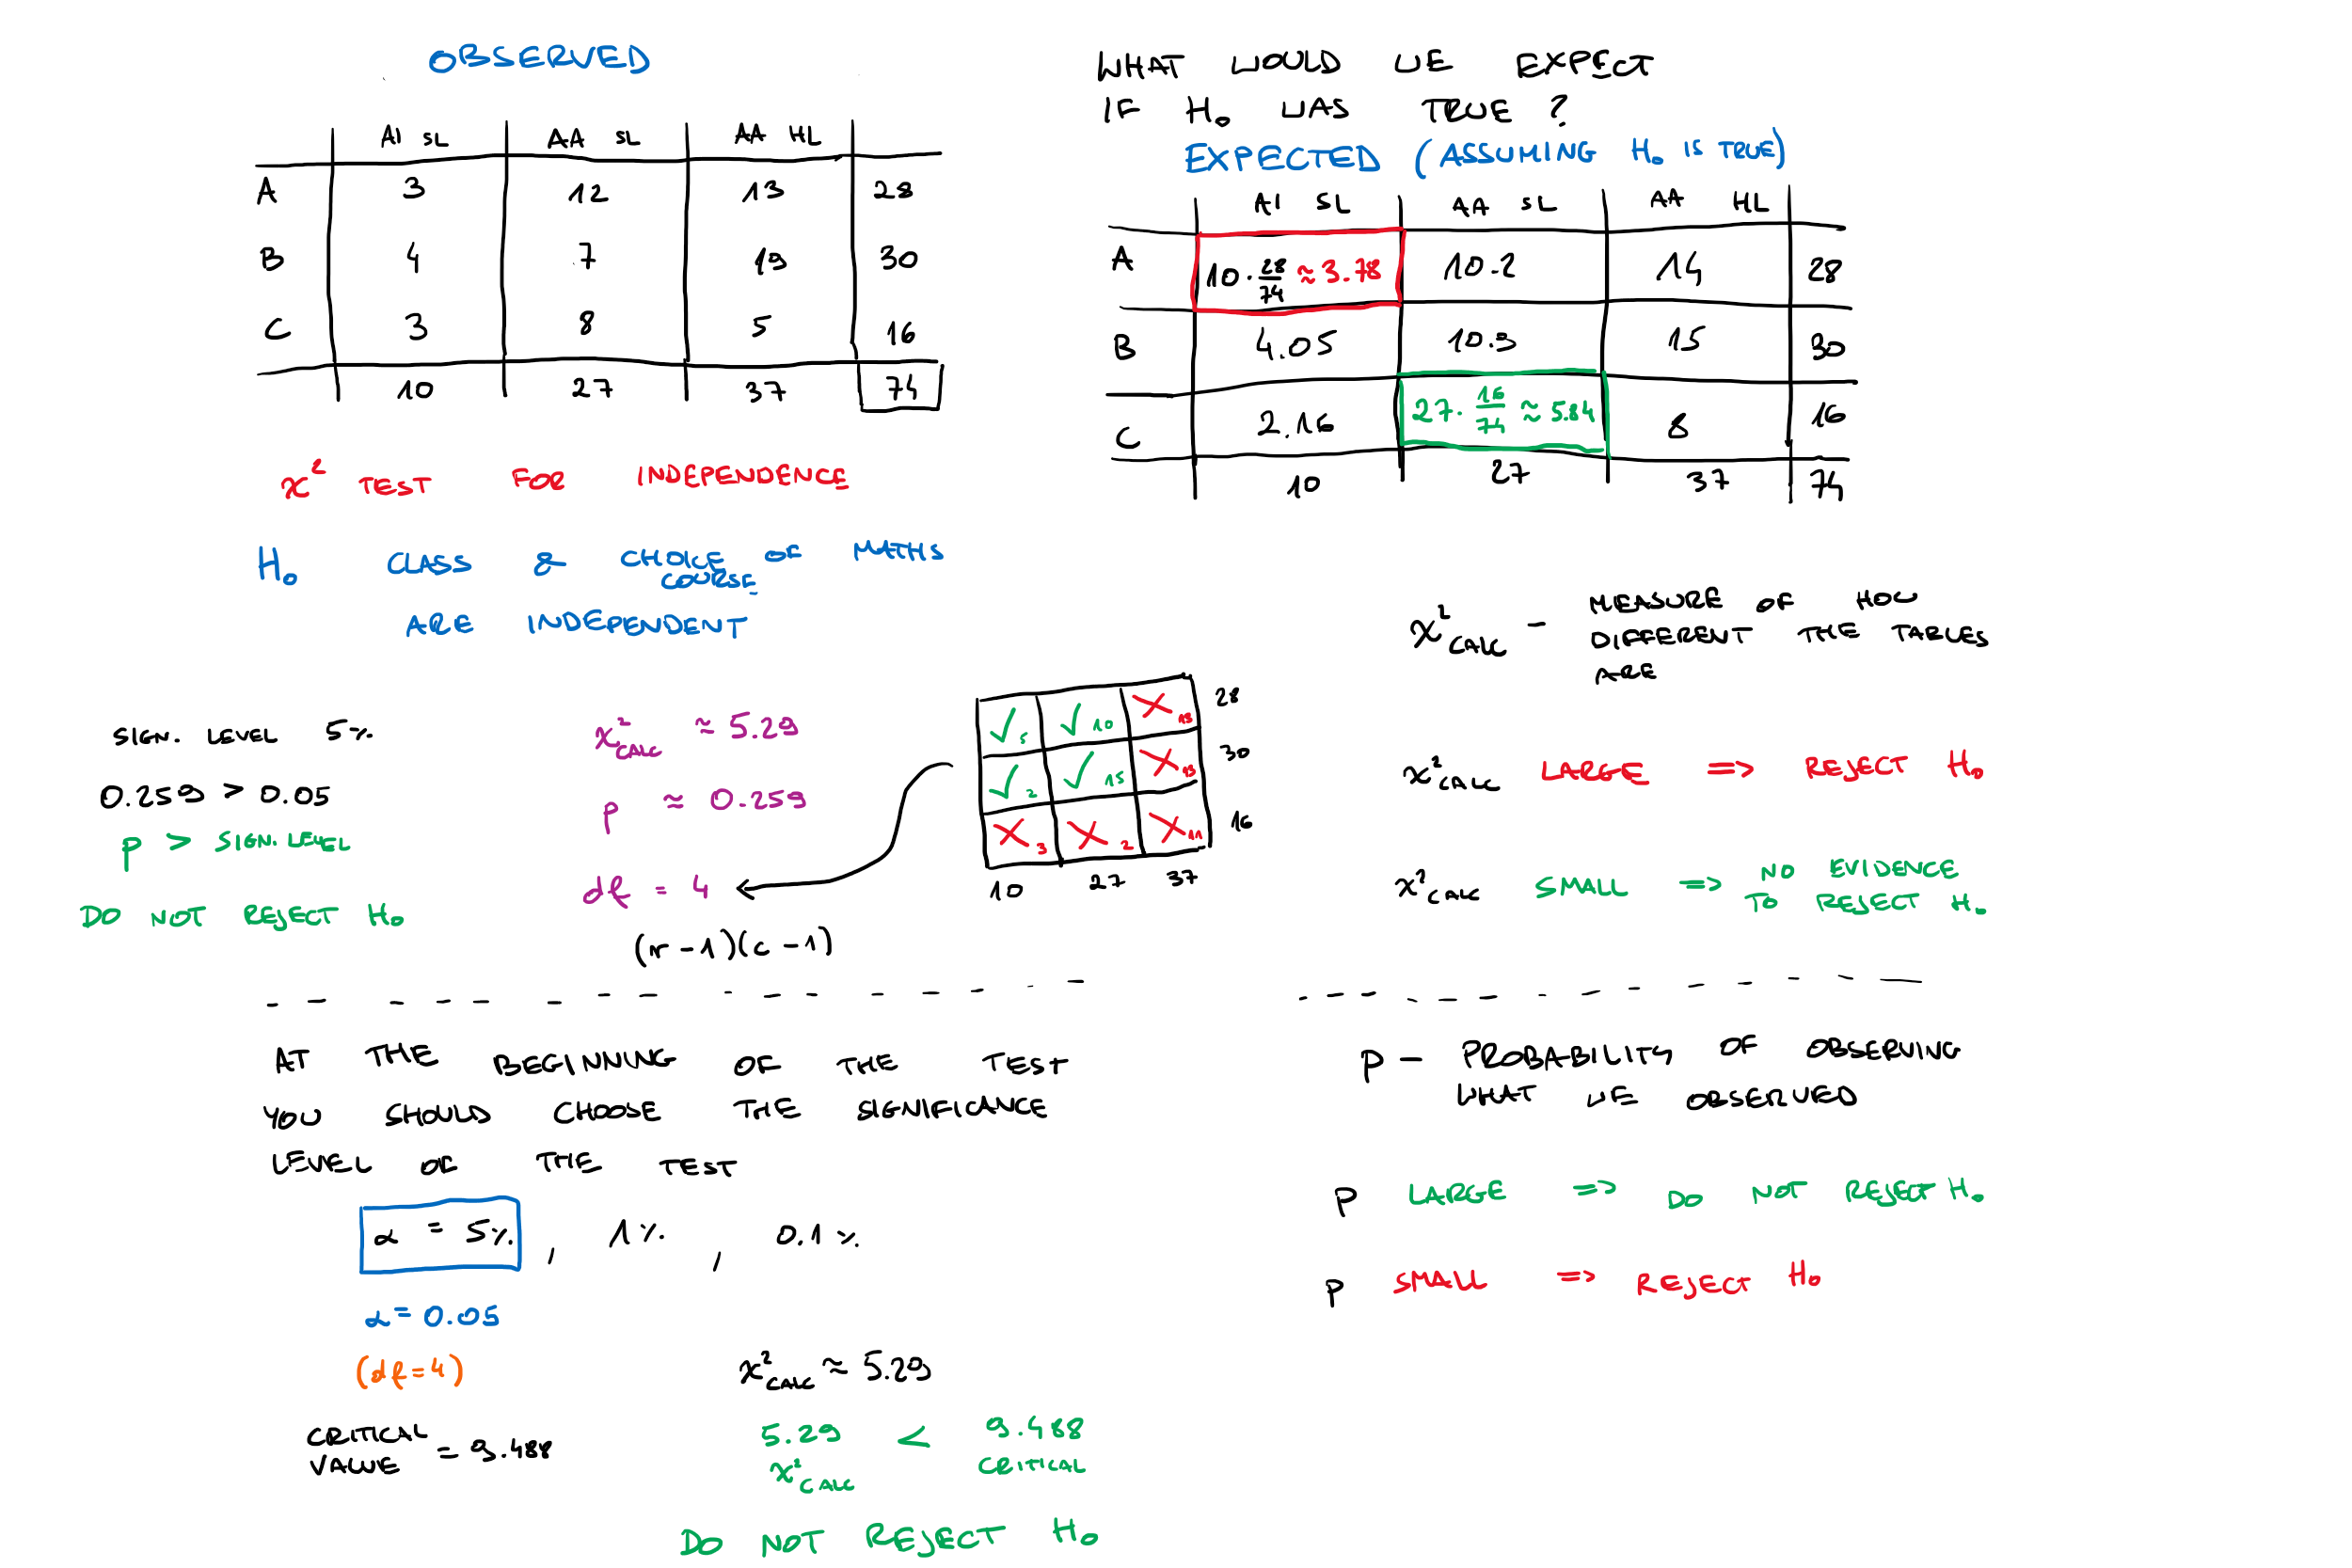 OBSERVED
AI SL AA SL AA HL
A 3 12 13 28
B 4 7 19 30
C 3 8 5 16
10 27 37 74
x² TEST FOR INDEPENDENCE
H₀ CLASS & CHOICE OF MATHS
COURSE
ARE INDEPENDENT
WHAT WOULD WE EXPECT
IF H₀ WAS TRUE ?
EXPECTED (ASSUMING H₀ IS TRUE)
AI SL AA SL AA HL
A 10 · 28/74 ≈ 3.78 10.2 14 28
B 4.05 10.9 15 30
C 2.16 27 · 16/74 ≈ 5.84 8 16
10 27 37 74
x²CALC – MEASURE OF HOW
DIFFERENT THE TABLES
ARE
SIGN. LEVEL 5%
0.259 > 0.05
p > SIGN. LEVEL
DO NOT REJECT H₀
x²CALC ≈ 5.29
p ≈ 0.259
df = 4
(r – 1)(c – 1)
✓5 ✓10 ✗13 28
✓2 ✓15 ✗13 30
✗3 ✗2 ✗11 16
10 27 37
x²CALC LARGE => REJECT H₀
x²CALC SMALL => NO EVIDENCE
TO REJECT H₀
AT THE BEGINNING OF THE TEST
YOU SHOULD CHOOSE THE SIGNIFICANCE
LEVEL OF THE TEST
α = 5% , 1% , 0.1%
α = 0.05
(df = 4)
CRITICAL
VALUE = 9.488
x²CALC ≈ 5.29
5.29 < 9.488
x²CALC CRITICAL
DO NOT REJECT H₀
p – PROBABILITY OF OBSERVING
WHAT WE OBSERVED
p LARGE => DO NOT REJECT H₀
p SMALL => REJECT H₀